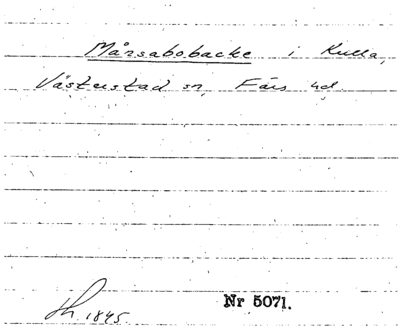 Månsabobacke i Kulla,
Västerstad sn, Färs hd
1845.
Nr 5071.